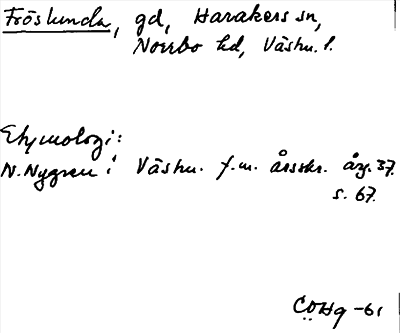 Fröslunda, gd, Harakers sn,
Norrbo hd, Västm. l.
Etymologi:
N. Nygren i Västm. f.m. årsskr. årg. 37.
s. 67.
CÖHg -61